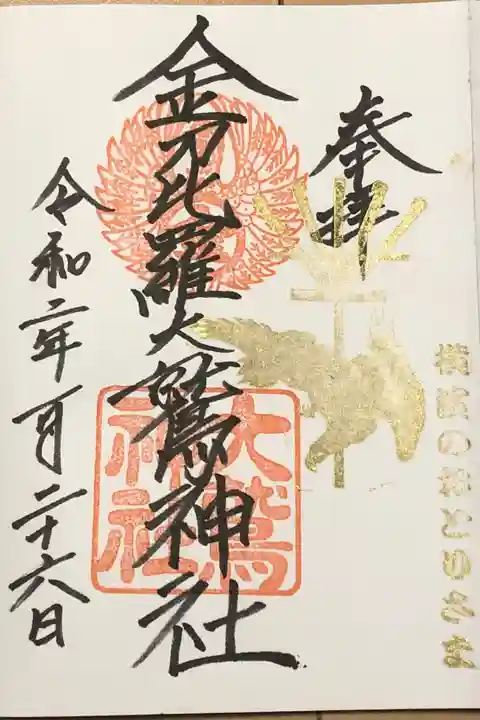 奉拝
横浜のおとりさま
金刀比羅大鷲神社
大鷲
神社
令和二年一月二十六日